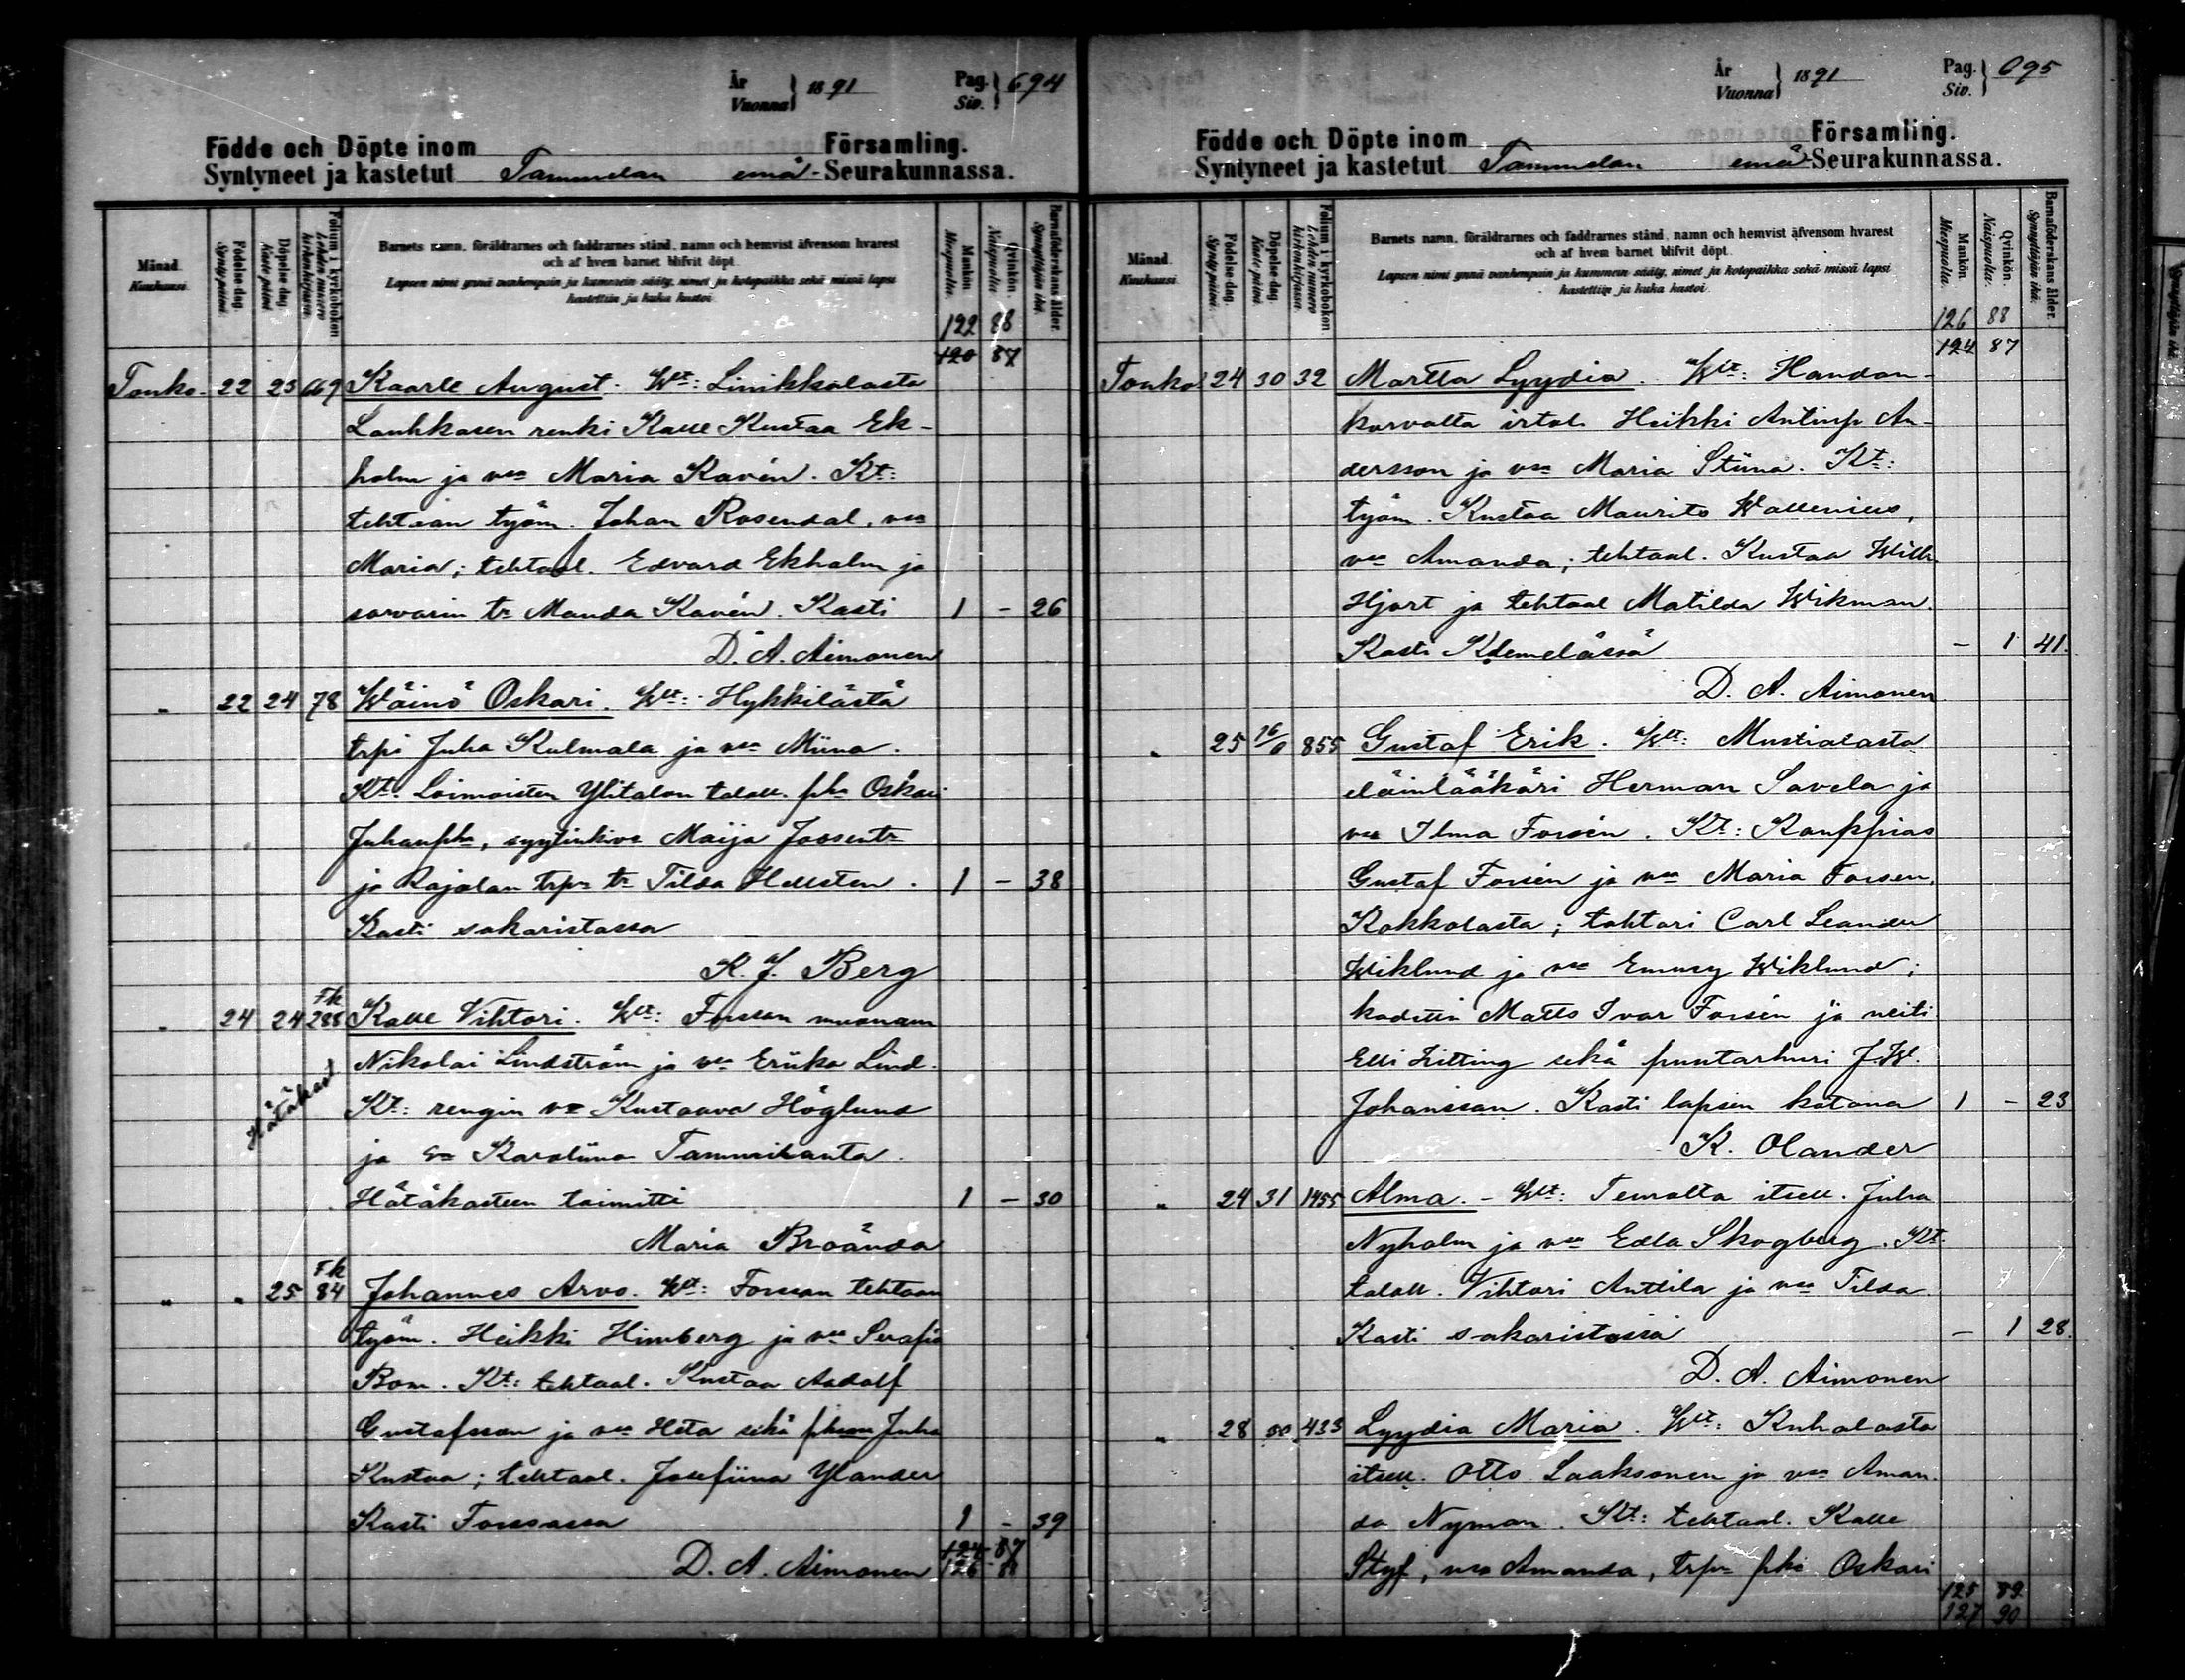 År
Vuonna } 1891
Pag.
Siv. } 694
Födde och Döpte inom Församling.
Syntyneet ja kastetut Tammelan emä-Seurakunnassa.
Månad.
Kuukausi.
Födelse dag.
Synty päivä.
Döpelse dag.
Kaste päivä.
Folium i kyrkobokon
Lehden numero
kirkonkirjassa.
Barnets namn, föräldrarnes och faddrarnes stånd, namn och hemvist äfvensom hvarest
och af hvem barnet blifvit döpt.
Lapsen nimi ynnä vanhempain ja kummein sääty, nimet ja kotopaikka sekä missä lapsi
kastettiin ja kuka kastoi.
Mankön.
Miespuolta.
Qvinkön.
Naispuolta.
Barnaföderskans ålder.
Synnyttäjän ikä.
122 88
120 87
Touko. 22 25 Kaarle August. Wt: Linikkalasta
Lauhkasen renki Kalle Kustaa Ek-
holm ja vmo Maria Kavén. Kt:
tehtaan työm. Johan Rosendal, vmo
Maria; tehtaal. Edvard Ekholm ja
sorvarin tr Manda Kavén. Kasti 1 - 26
D. A. Aimonen
" 22 24 78 Wäinö Oskari. Wt: Hykkilästä
trpi Juha Kulmala ja vmo Miina.
Kt. Loimoisten Ylitalon taloll. pka Oskari
Juhanpka, syytinkiva Maija Joosentr
ja Rajalan trpn tr Tilda Hellsten. 1 - 38
Kasti sakaristassa
K. J. Berg
" 24 24 Fk 288 Kalle Vihtori. Wt: Forssan muonam
Nikolai Lindström ja vmo Eriika Lind.
Hätäkast
Kt: rengin vmo Kustaava Höglund
ja Karoliina Tammiranta.
Hätäkasteen toimitti 1 - 30
Maria Broända
" " 25 Fk 84 Johannes Arvo. Wt: Forssan tehtaan
työm. Heikki Himberg ja vmo Serafia
Bom. Kt: tehtaal. Kustaa Aadolf
Gustafsson ja vmo Heta sekä Juha
Kustaa; tehtaal. Josefiina Ylander
Kasti Forssassa 1 - 39
D. A. Aimonen 124 87
126 88
År
Vuonna } 1891
Pag.
Siv. } 695
Födde och Döpte inom Församling.
Syntyneet ja kastetut Tammelan emä-Seurakunnassa.
Månad.
Kuukausi.
Födelse dag.
Synty päivä.
Döpelse dag.
Kaste päivä.
Folium i kyrkobokon
Lehden numero
kirkonkirjassa.
Barnets namn, föräldrarnes och faddrarnes stånd, namn och hemvist äfvensom hvarest
och af hvem barnet blifvit döpt.
Lapsen nimi ynnä vanhempain ja kummein sääty, nimet ja kotopaikka sekä missä lapsi
kastettiin ja kuka kastoi.
Mankön.
Miespuolta.
Qvinkön.
Naispuolta.
Barnaföderskans ålder.
Synnyttäjän ikä.
126 88
124 87
Touko 24 30 32 Martta Lyydia. Wt: Haudan-
korvalta irtol. Heikki Antinp An-
dersson ja vmo Maria Stiina. Kt:
työm. Kustaa Maurits Wallenius,
vmo Amanda; tehtaal. Kustaa Wilh.
Hjort ja tehtaal Matilda Wikman.
Kasti - 1 41.
D. A. Aimonen
" 25 16/6 855 Gustaf Erik. Wt: Mustialasta
eläinlääkäri Herman Savela ja
vmo Ilma Forsén. Kt: Kauppias
Gustaf Forsén ja vmo Maria Forsen,
Kokkolasta; tohtori Carl Leander
Wiklund ja vmo Emmy Wiklund;
kadetti Matts Ivar Forsén ja neiti
Elli Litting sekä puutarhuri J. W.
Johansson. Kasti lapsen kotona 1 - 23
K. Olander
" 24 31 1455 Alma. - Wt: Teurolta itsell. Juha
Nyholm ja vmo Edla Skogberg. Kt.
taloll. Vihtori Anttila ja vmo Tilda
Kasti sakaristossa - 1 28.
D. A. Aimonen
" 28 433 Lyydia Maria. Wt: Kuhalasta
itsell. Otto Laaksonen ja vmo Aman-
da Nyman. Kt: tehtaal. Kalle
Styf, vmo Amanda, trpn pka Oskari
125 89.
127 90